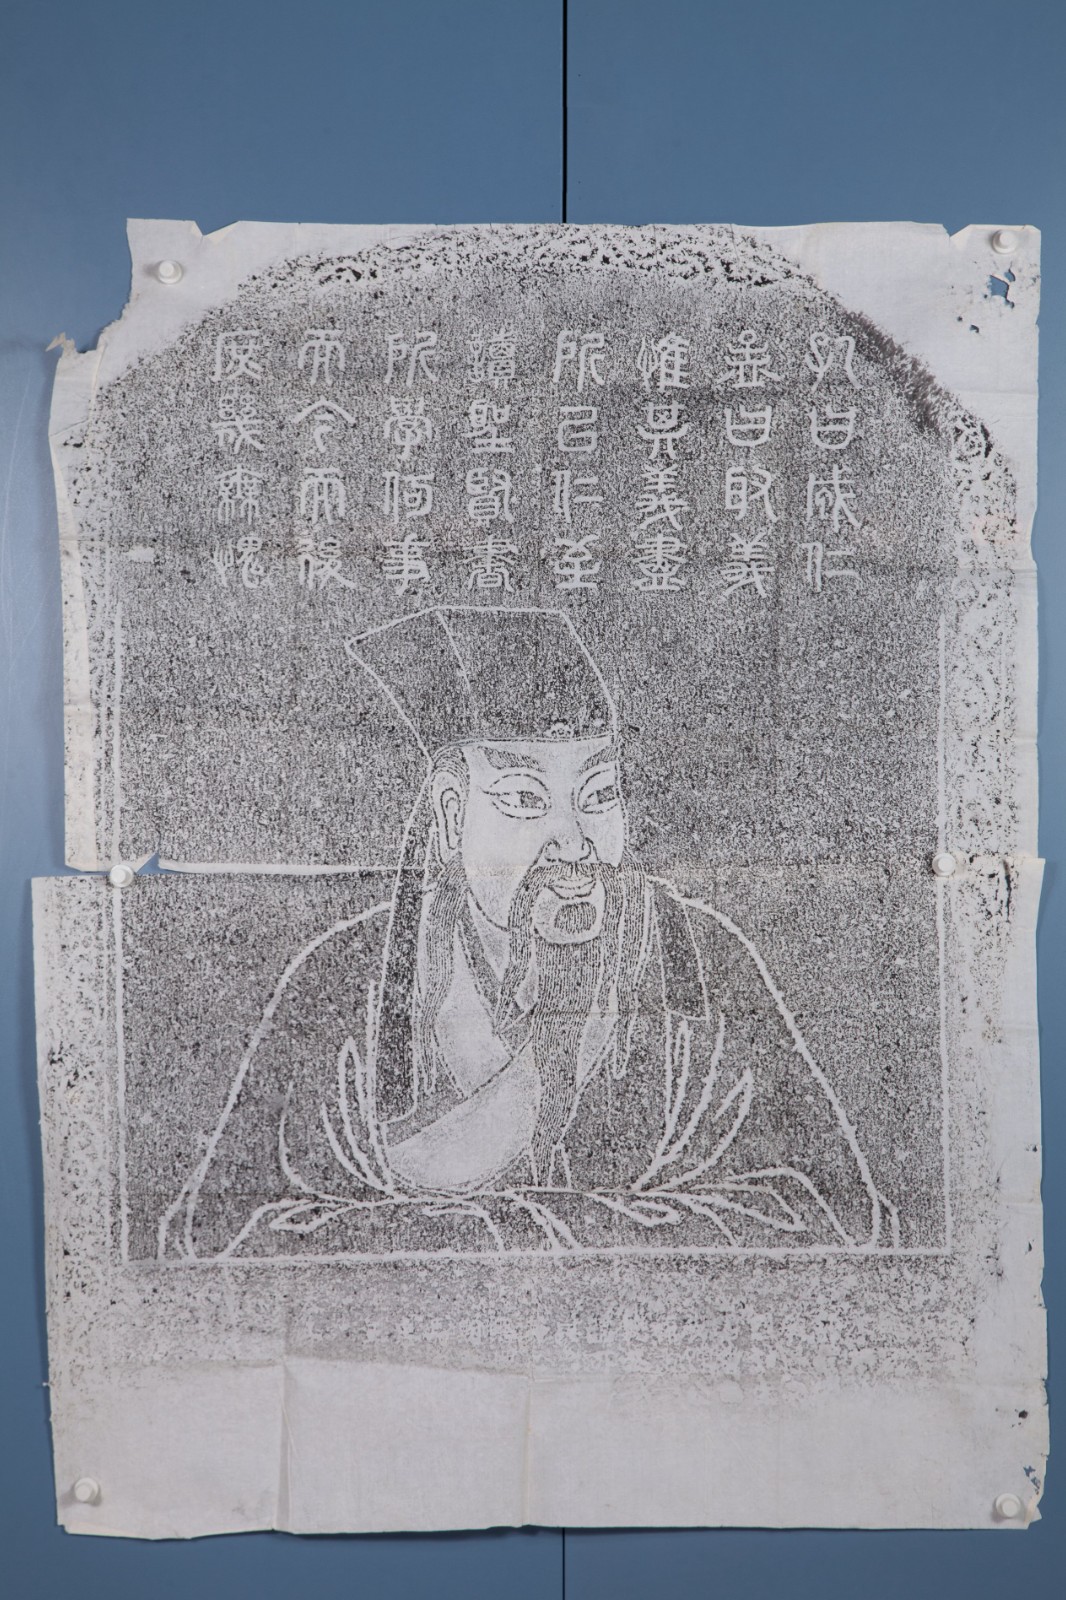 孔曰成仁
孟曰取義
惟其義盡
所㠯仁至
讀聖賢書
所學何事
而今而後
庶幾無愧